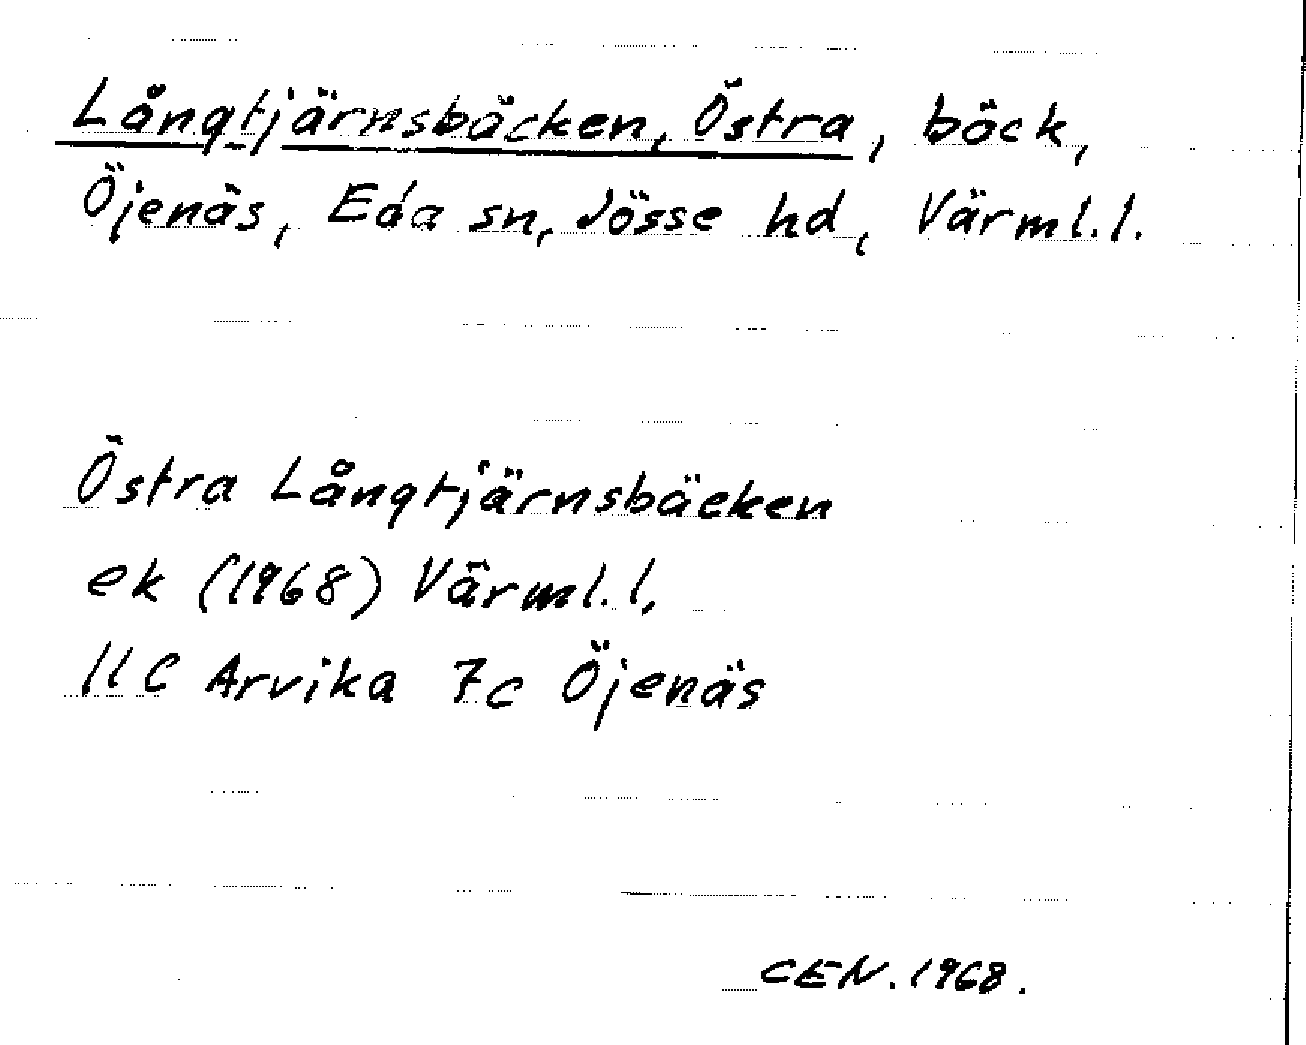 Långtjärnsbäcken, Östra, bäck,
Öjenäs, Eda sn, Jösse hd, Värml. l.
Östra Långtjärnsbäcken
ek (1968) Värml. l.
11C Arvika 7c Öjenäs
CEN. 1968.